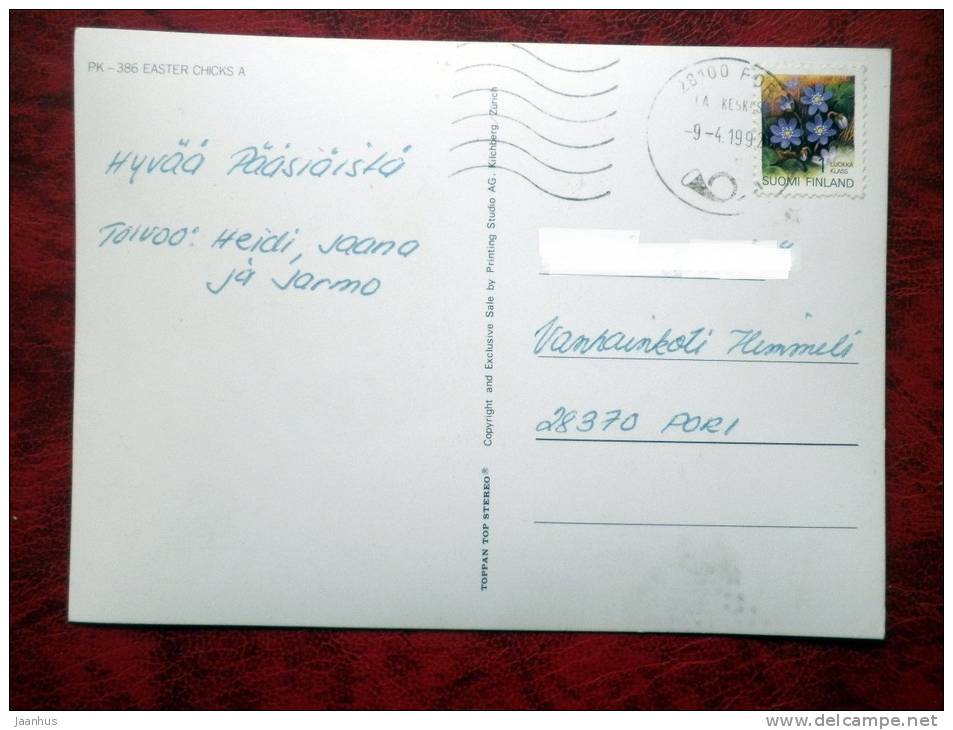 PK – 386 EASTER CHICKS A
Hyvää Pääsiäistä
Toivoo: Heidi, Jaana
ja Jarmo
TOPPAN TOP STEREO® Copyright and Exclusive Sale by Printing Studio AG. Kilchberg/Zürich
28100
KESKUS
-9-4.199
1 LUOKKA
KLASS
SUOMI FINLAND
Vanhainkoti Himmeli
28370 PORI
Jaanhus
www.delcampe.net